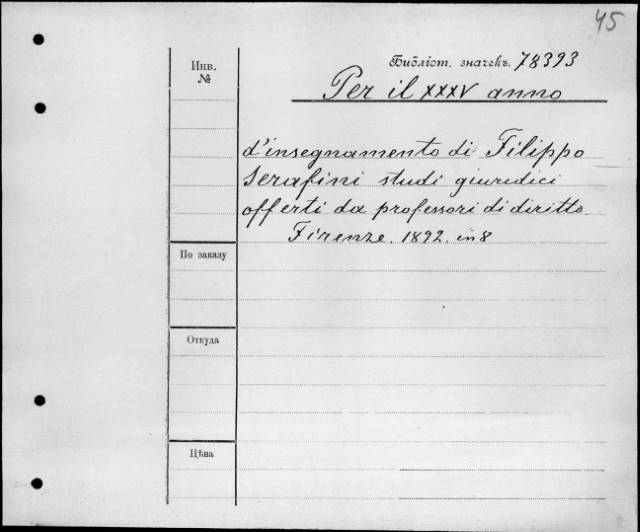 45
Инв. №
Библіот. значекъ. 78393
Per il XXXV anno
d'insegnamento di Filippo
Serafini studi giuridici
offerti da professori di diritto.
Firenze. 1892. in 8
По заказу
Откуда
Цѣна